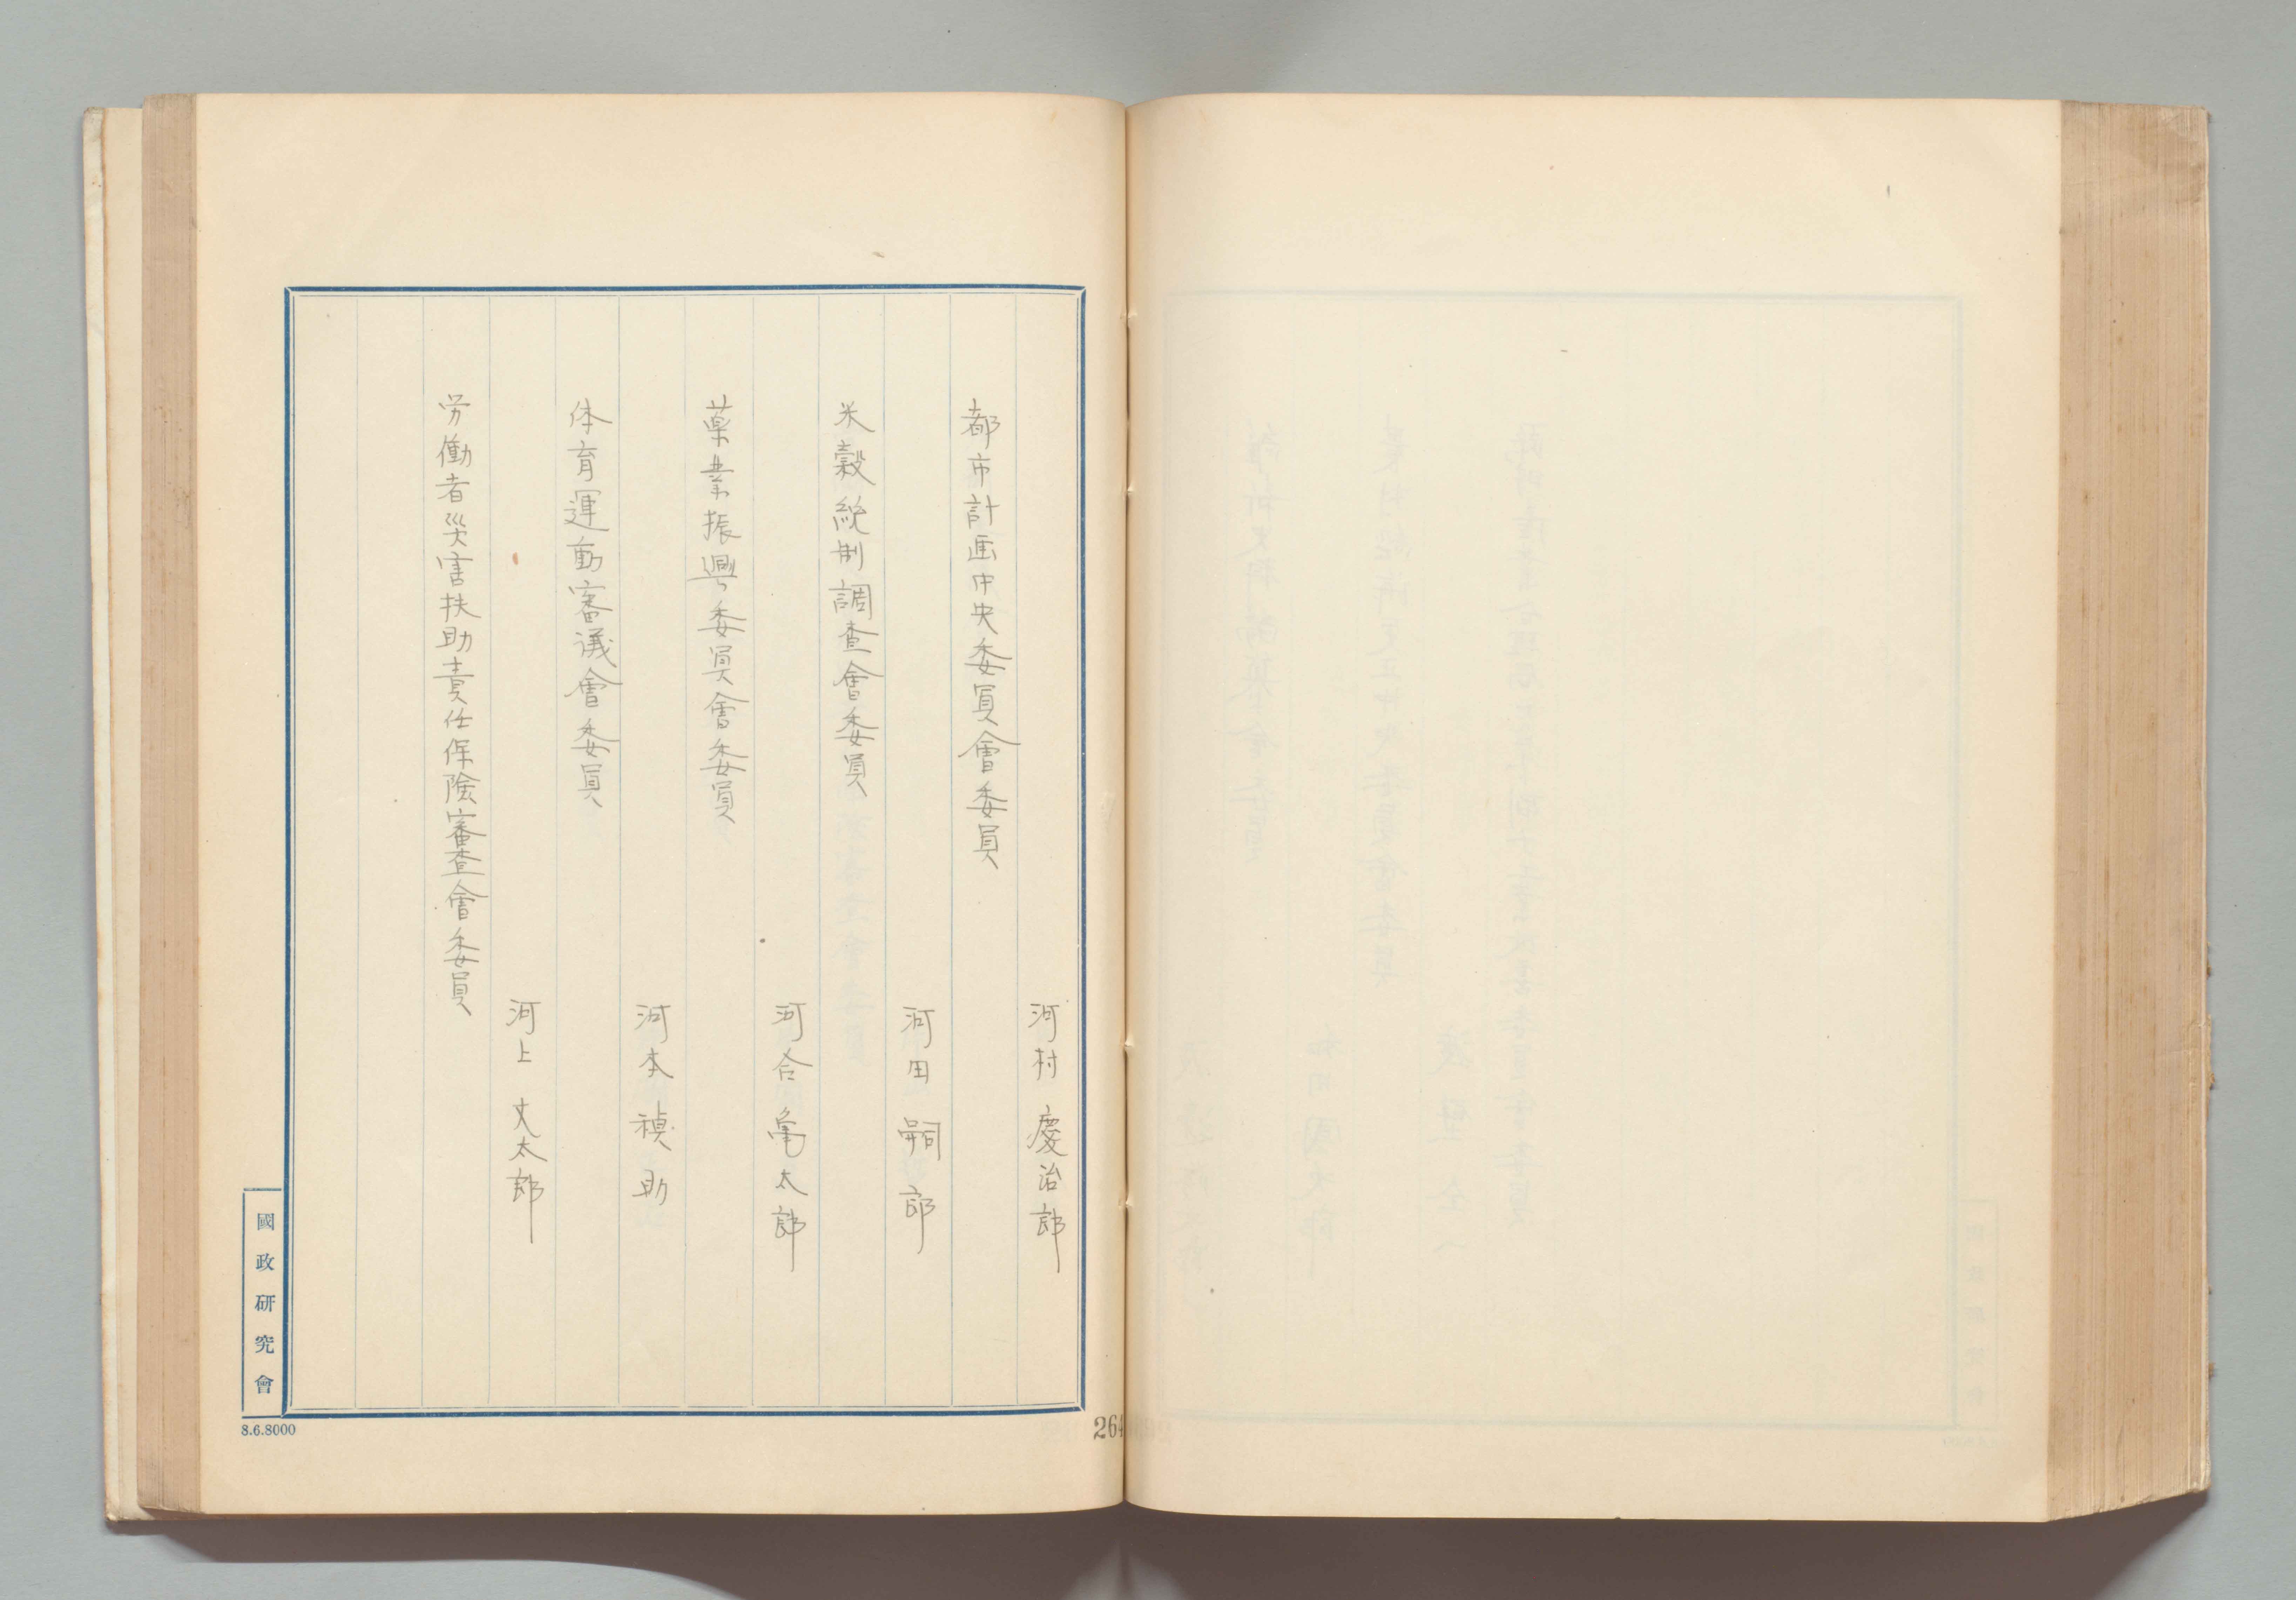 河村慶治郎
都市計画中央委員會委員
河田嗣郎
米穀統制調査會委員
河合亀太郎
薬業振興委員會委員
河本禎助
体育運動審議會委員
河上丈太郎
労働者災害扶助責任保険審査會委員
國政研究會
8.6.8000
264